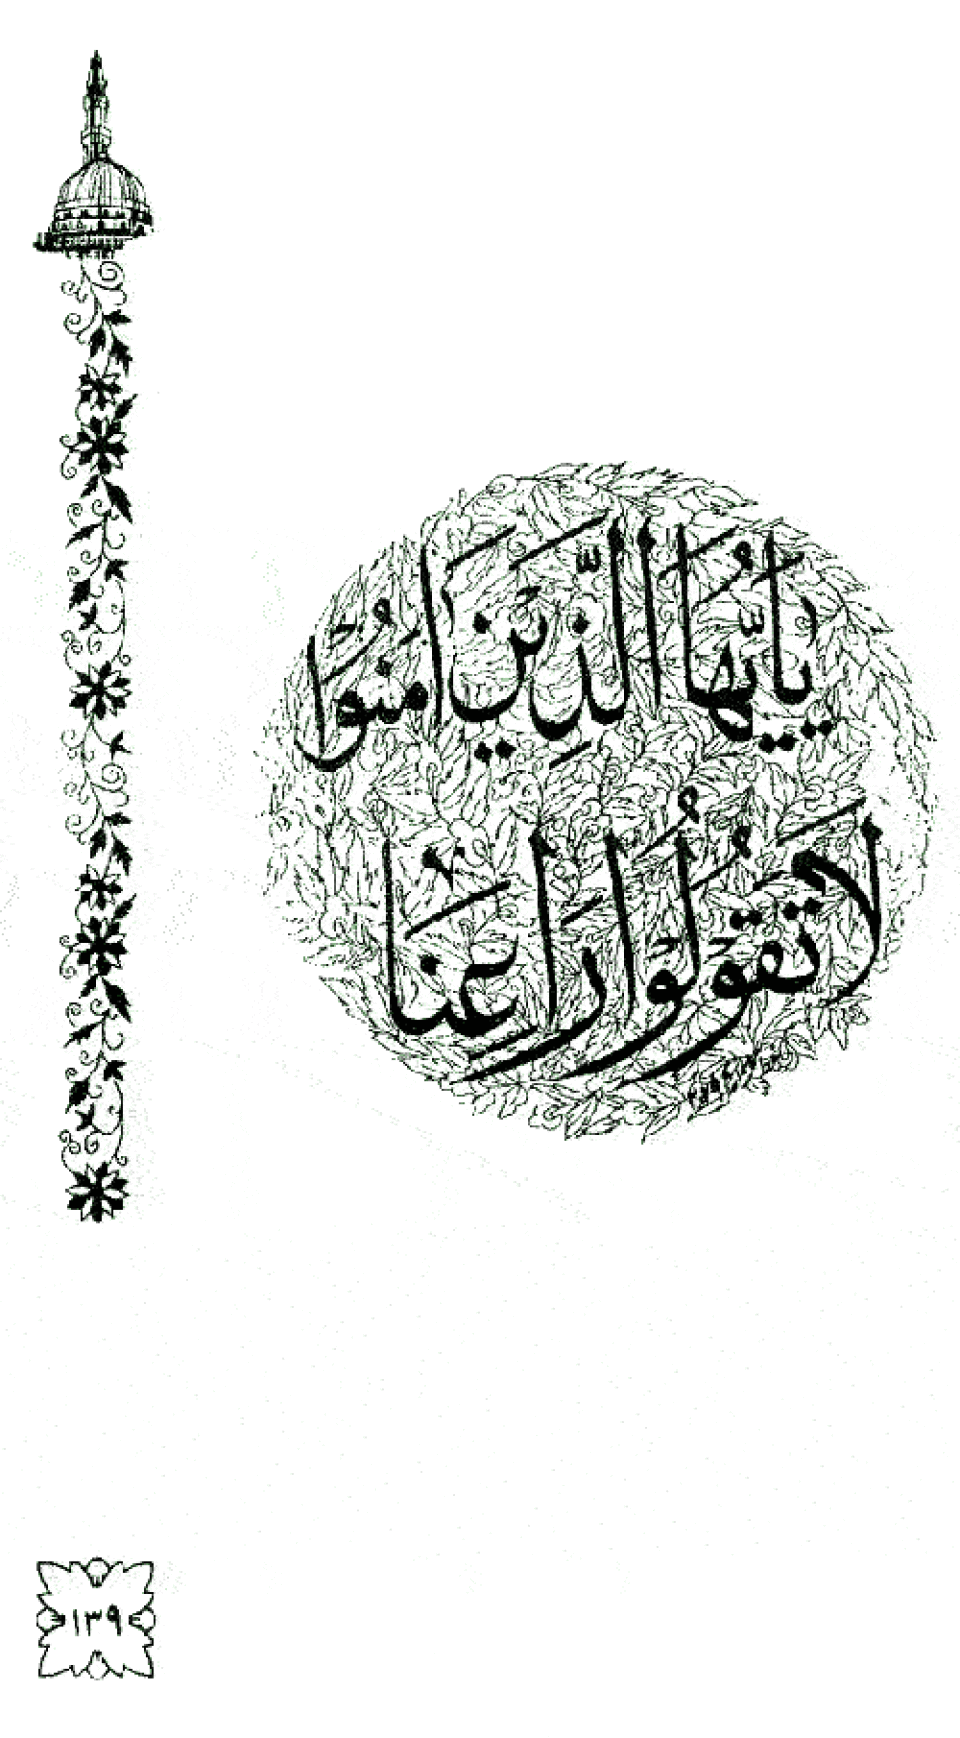 يٰاَيُّهَا الَّذِيْنَ اٰمَنُوْا
لَا تَقُوْلُوْا رَاعِنَا
١٣٩